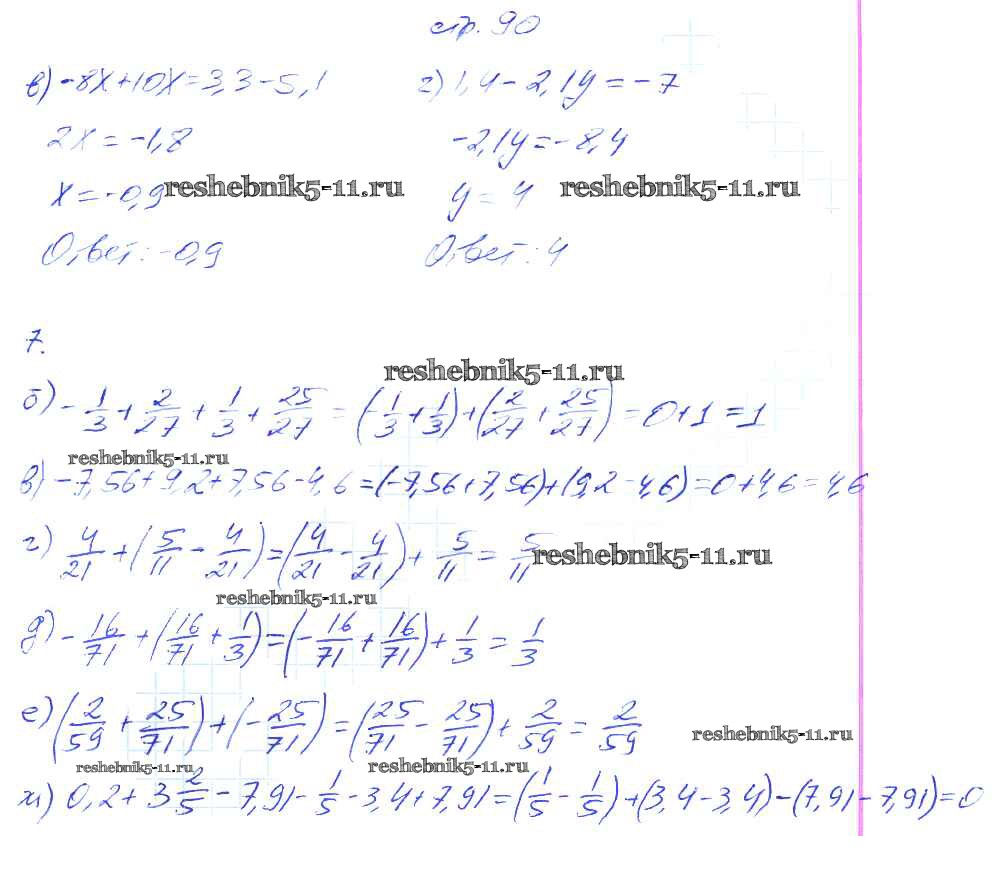 стр. 90
в) -8x+10x=3,3-5,1 г) 1,4-2,1y=-7
2x=-1,8 -2,1y=-8,4
x=-0,9 reshebnik5-11.ru y=4 reshebnik5-11.ru
Ответ: -0,9 Ответ: 4
7.
reshebnik5-11.ru
б) -1/3+2/27+1/3+25/27=(-1/3+1/3)+(2/27+25/27)=0+1=1
reshebnik5-11.ru
в) -7,56+9,2+7,56-4,6=(-7,56+7,56)+(9,2-4,6)=0+4,6=4,6
г) 4/21+(5/11-4/21)=(4/21-4/21)+5/11=5/11 reshebnik5-11.ru
reshebnik5-11.ru
д) -16/71+(16/71+1/3)=(-16/71+16/71)+1/3=1/3
е) (2/59+25/71)+(-25/71)=(25/71-25/71)+2/59=2/59 reshebnik5-11.ru
reshebnik5-11.ru reshebnik5-11.ru
ж) 0,2+3 2/5-7,91-1/5-3,4+7,91=(1/5-1/5)+(3,4-3,4)-(7,91-7,91)=0